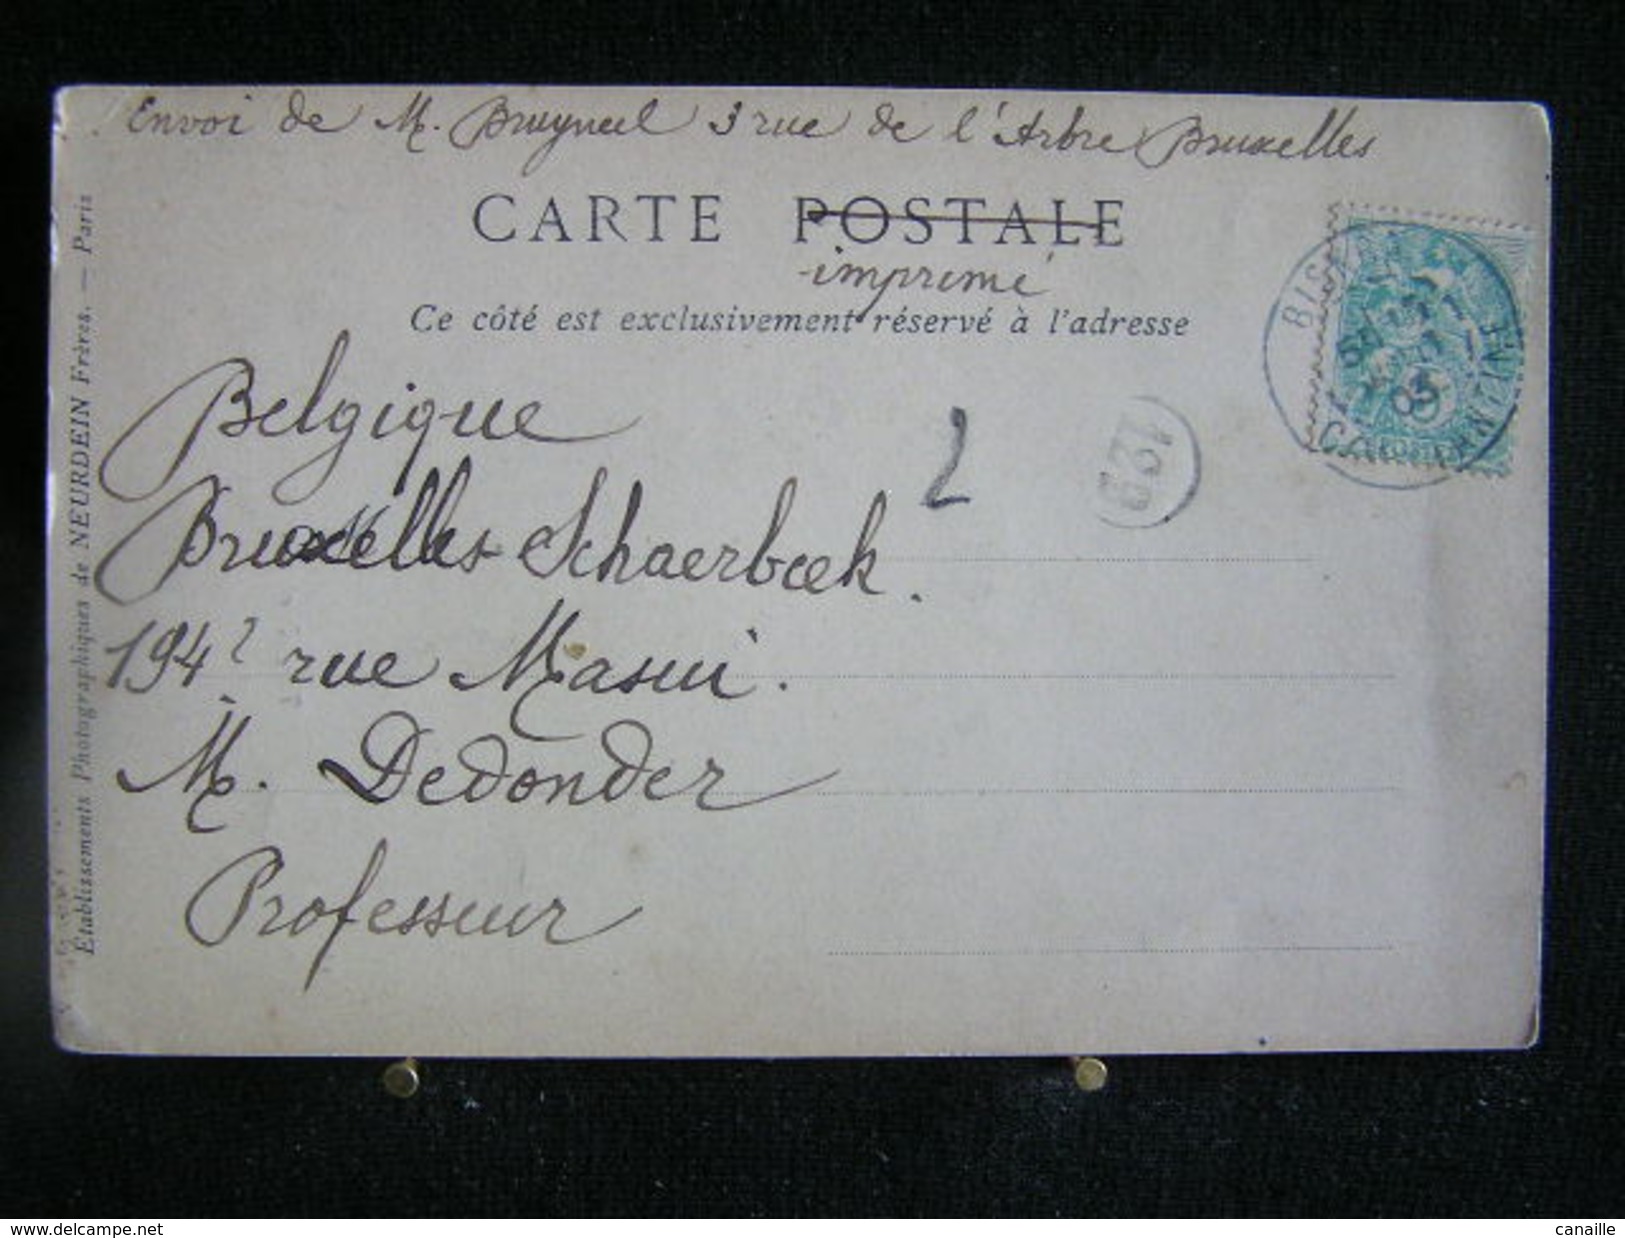 Envoi de M. Bruyneel 3 rue de l'Arbre Bruxelles
CARTE POSTALE
imprimé
Ce côté est exclusivement réservé à l'adresse
BISKRA
CONSTANTINE
03
Belgique
2
129
Bruxelles-Schaerbeek.
194² rue Masui.
M. Dedonder
Professeur
Etablissements Photographiques de NEURDEIN Frères. — Paris
www.delcampe.net
canaille